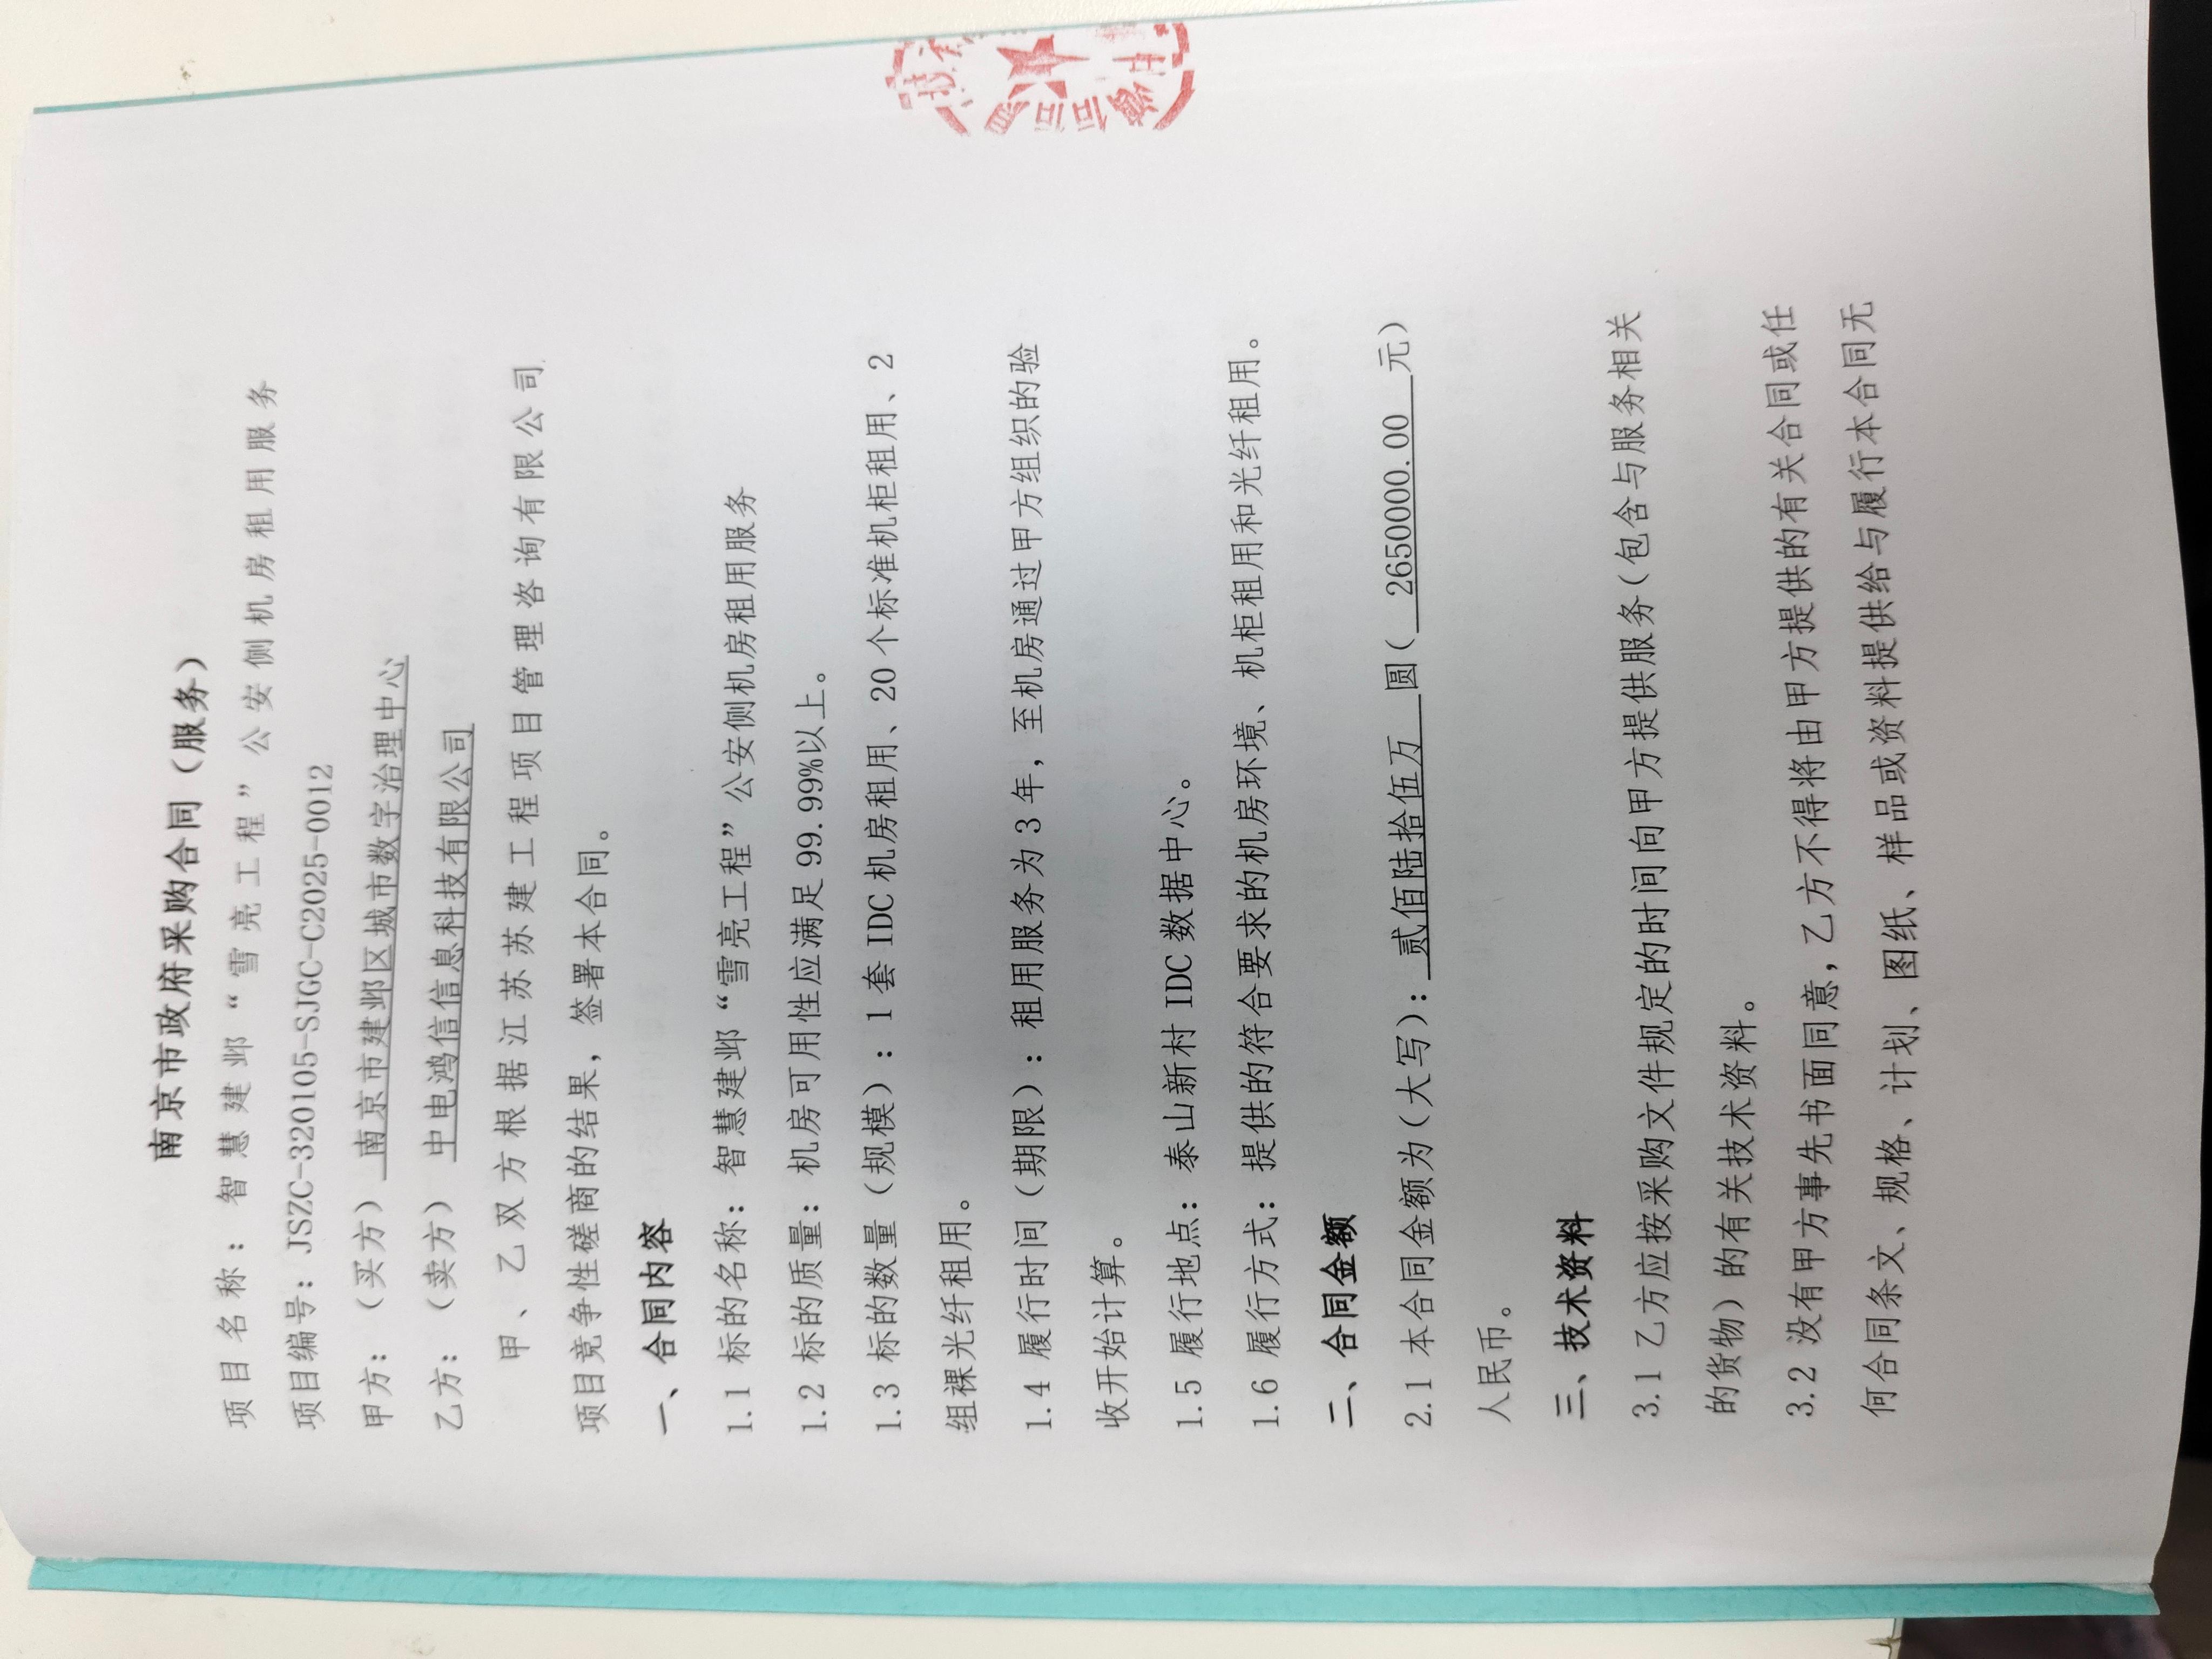 南京市政府采购合同（服务）
项目名称：智慧建邺“雪亮工程”公安侧机房租用服务
项目编号：JSZC-320105-SJGC-C2025-0012
甲方：（买方）南京市建邺区城市数字治理中心
乙方：（卖方）中电鸿信信息科技有限公司
甲、乙双方根据江苏苏建工程项目管理咨询有限公司
项目竞争性磋商的结果，签署本合同。
一、合同内容
1.1 标的名称：智慧建邺“雪亮工程”公安侧机房租用服务
1.2 标的质量：机房可用性应满足99.99%以上。
1.3 标的数量（规模）：1 套 IDC 机房租用、20 个标准机柜租用、2
组裸光纤租用。
1.4 履行时间（期限）：租用服务为 3 年，至机房通过甲方组织的验
收开始计算。
1.5 履行地点：泰山新村 IDC 数据中心。
1.6 履行方式：提供的符合要求的机房环境、机柜租用和光纤租用。
二、合同金额
2.1 本合同金额为（大写）：贰佰陆拾伍万圆（2650000.00元）
人民币。
三、技术资料
3.1 乙方应按采购文件规定的时间向甲方提供服务（包含与服务相关
的货物）的有关技术资料。
3.2 没有甲方事先书面同意，乙方不得将由甲方提供的有关合同或任
何合同条文、规格、计划、图纸、样品或资料提供给与履行本合同无